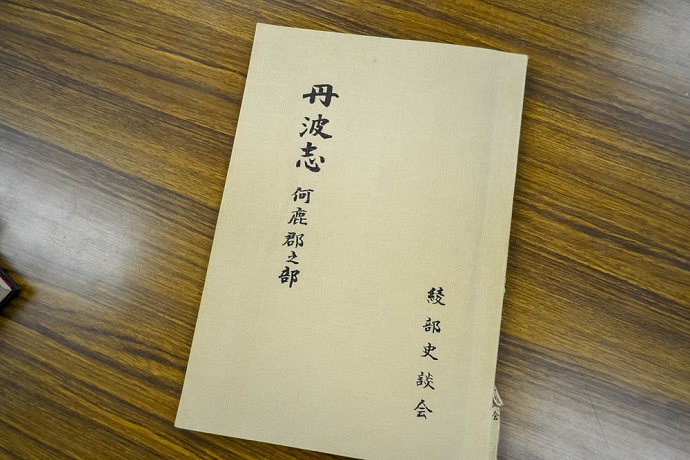 丹波志 何鹿郡之部
綾部史談会
会